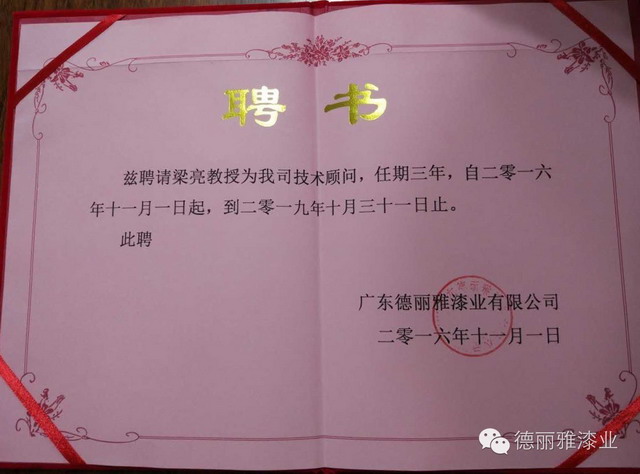 聘书
兹聘请梁亮教授为我司技术顾问，任期三年，自二零一六
年十一月一日起，到二零一九年十月三十一日止。
此聘
广东德丽雅漆业有限公司
二零一六年十一月一日
德丽雅漆业